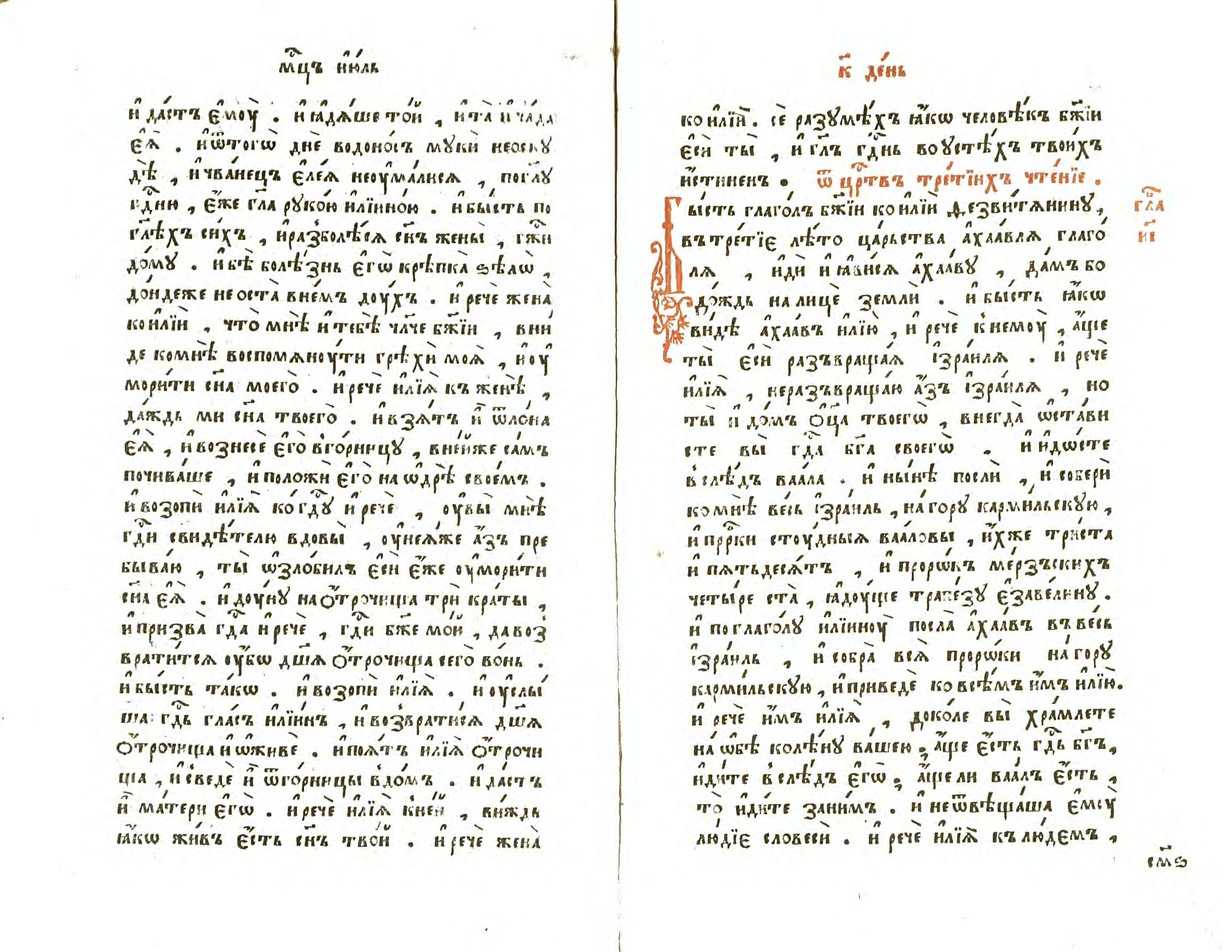 мⷭ҇цъ і҆ю́ль
и҆ да́стъ є҆моꙋ̀ . и҆ ꙗ҆дѧ́ше то́й , и҆ та̀ и҆ ча́да
є҆ѧ̀ . и҆ ѿтогѡ̀ днѐ водоно́съ мꙋкѝ неѡскꙋ
дѣ̀ , и҆ чва́нецъ є҆ле́ѧ неоума́лисѧ , погл꙽ꙋ
гдⷭ҇ню , є҆́же гл҃а рꙋко́ю и҆лїино́ю . и҆ бы́сть по
гл҃ѣхъ си́хъ , и҆ разболѣ́сѧ сн҃ъ жены̀ , гжⷭ҇ѝ
до́мꙋ . и҆ бѣ̀ болѣ́знь є҆гѡ̀ крѣпка̀ ѕѣлѡ̀ ,
до́ндеже не оста̀ в не́мъ дꙋ́хъ . и҆ речѐ жена̀
ко и҆лїѝ , что̀ мнѣ̀ и҆ тебѣ̀ чл҃че бж҃їи , вни́
де ко мнѣ̀ воспомѧноу́ти грѣхѝ моѧ̀ , и҆ оу҆
мори́ти сн҃а моего̀ . и҆ речѐ и҆лїѧ̀ къ женѣ̀ ,
да́ждь ми сн҃а твоего̀ . и҆ взѧ́тъ и҆̀ ѿ ло́на
є҆ѧ̀ , и҆ вознесѐ є҆го̀ в го́рницꙋ , в не́йже са́мъ
почива́ше , и҆ положѝ є҆го̀ на ѡ҆дрѣ̀ свое́мъ .
и҆ возопѝ и҆лїѧ̀ ко гдⷭ҇ꙋ и҆ речѐ , оу҆вы̀ мнѣ̀
гдⷭ҇и свидѣ́телю вдовы̀ , оу҆ неѧ́же а҆́зъ пре
быва́ю , ты̀ ѡ҆ѕло́билъ є҆сѝ є҆́же оу҆мори́ти
сн҃а є҆ѧ̀ . и҆ дꙋ́нꙋ на ѻ҆́трочища трѝ кра́ты ,
и҆ призва̀ гдⷭ҇а и҆ речѐ , гдⷭ҇и бж҃е мо́й , да воз
врати́тсѧ оу҆́бѡ дш҃ѧ ѻ҆́трочища сего̀ во́нь .
и҆ бы́сть та́кѡ . и҆ возопѝ и҆лїѧ̀ . и҆ оу҆слы́
ша гдⷭ҇ь гла́съ и҆лїи́нъ , и҆ возврати́сѧ дш҃ѧ
ѻ҆́трочища и҆ ѡ҆живѐ . и҆ поѧ́тъ и҆лїѧ̀ ѻ҆́трочи
ща , и҆ сведѐ и҆̀ ѿ го́рницы в до́мъ . и҆ да́стъ
и҆̀ ма́тери є҆гѡ̀ . и҆ речѐ и҆лїѧ̀ к не́й , ви́ждь
ꙗ҆́кѡ жи́въ є҆́сть сн҃ъ тво́й . и҆ речѐ жена̀
к҃ де́нь
ко и҆лїѝ . сѐ разꙋмѣ́хъ ꙗ҆́кѡ человѣ́къ бж҃їи
є҆сѝ ты̀ , и҆ гл҃ъ гдⷭ҇нь во оустѣ́хъ твои́хъ
и҆́стиненъ . ѿ црⷭ҇твъ тре́тїихъ чте́нїе .
Бы́сть глаго́лъ бж҃їи ко и҆лїѝ ѳезвитѧ́нинꙋ ,
въ тре́тїе лѣ́то ца́рьства а҆хаа́влѧ глаго́
лѧ , и҆дѝ и҆ ꙗ҆ви́сѧ а҆хаа́вꙋ , да́мъ бо
до́ждь на лицѐ землѝ . и҆ бы́сть ꙗ҆́кѡ
ви́дѣ а҆хаа́въ и҆лїю̀ , и҆ речѐ к немоꙋ̀ , а҆́ще
ты̀ є҆сѝ разъвраща́ѧ і҆зра́илѧ . и҆ речѐ
и҆лїѧ̀ , не разъвраща́ю а҆́зъ і҆зра́илѧ , но
ты̀ и҆ до́мъ ѻ҆ц҃а твоегѡ̀ , внегда̀ ѡ҆ста́ви
сте вы̀ гдⷭ҇а бг҃а своегѡ̀ . и҆ и҆до́сте
в слѣ́дъ ваа́ла . и҆ ны́нѣ послѝ , и҆ соберѝ
ко мнѣ̀ весь і҆зра́иль , на горꙋ̀ карми́льскꙋю ,
и҆ прⷪ҇ро́ки стоу́дныѧ ваа́ловы , и҆́хже три́ста
и҆ пѧтьдесѧ́тъ , и҆ проро́къ ме́рзъскихъ
четы́ре ста̀ , ꙗ҆доу́ще трапе́зꙋ є҆заве́линꙋ .
и҆ по глаго́лꙋ и҆лїиноꙋ̀ посла̀ а҆хаа́въ въ ве́сь
і҆зра́иль , и҆ собра̀ всѧ̀ проро́ки на горꙋ̀
карми́льскꙋю , и҆ приведѐ ко всѣ́мъ и҆̀мъ и҆лїю̀ .
и҆ речѐ и҆̀мъ и҆лїѧ̀ , доко́ле вы̀ хра́млете
на ѻ҆́бѣ колѣ́нꙋ ва́шею , а҆́ще є҆́сть гдⷭ҇ь бг҃ъ ,
и҆ди́те в слѣ́дъ є҆гѡ̀ , а҆́ще ли ваа́лъ є҆́сть ,
то̀ и҆ди́те за ни́мъ . и҆ не ѿвѣща́ша є҆моꙋ̀
лю́дїе словесѝ . и҆ речѐ и҆лїѧ̀ къ лю́демъ ,
гл҃а
н҃і
смѕ҃